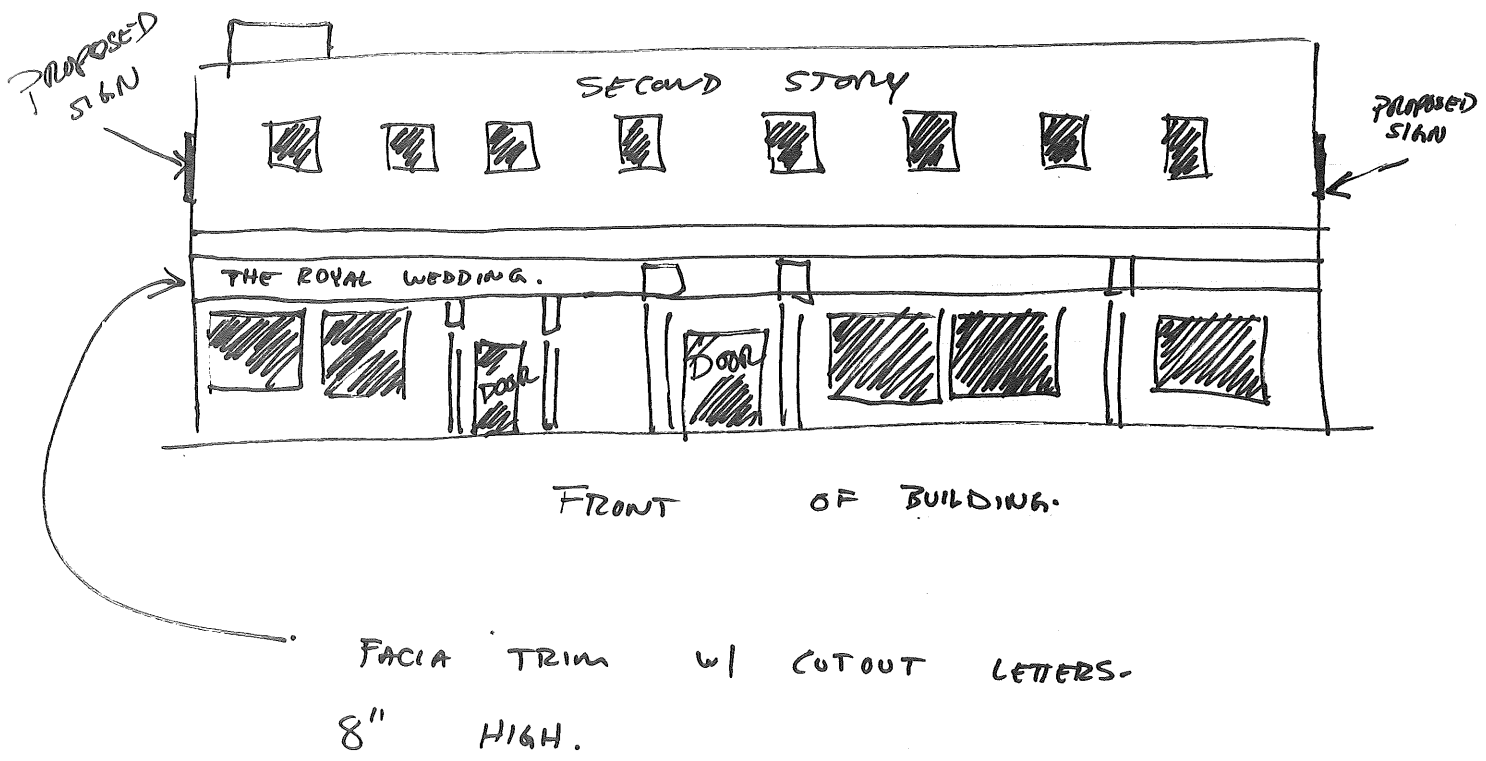 PROPOSED
SIGN
SECOND STORY
PROPOSED
SIGN
THE ROYAL WEDDING.
DOOR
DOOR
FRONT OF BUILDING.
FACIA TRIM W/ CUTOUT LETTERS.
8" HIGH.